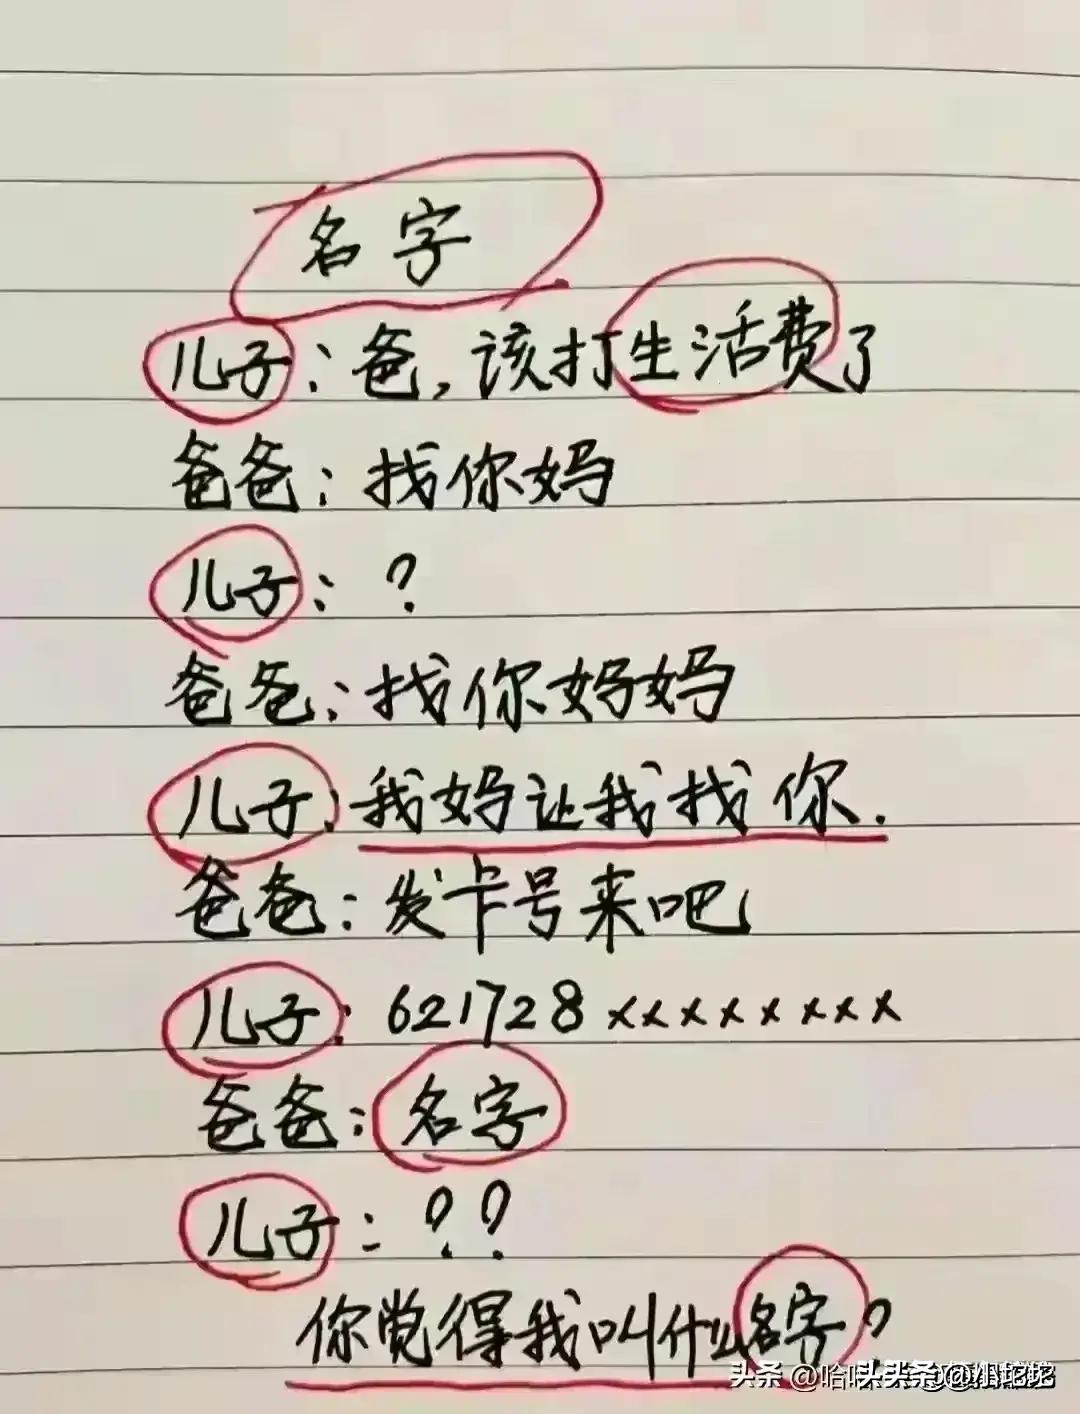 名字
儿子：爸，该打生活费了
爸爸：找你妈
儿子：？
爸爸：找你妈妈
儿子：我妈让我找你.
爸爸：发卡号来吧
儿子：621728xxxxxxxx
爸爸：名字
儿子：？？
你觉得我叫什么名字？
头条 @哈